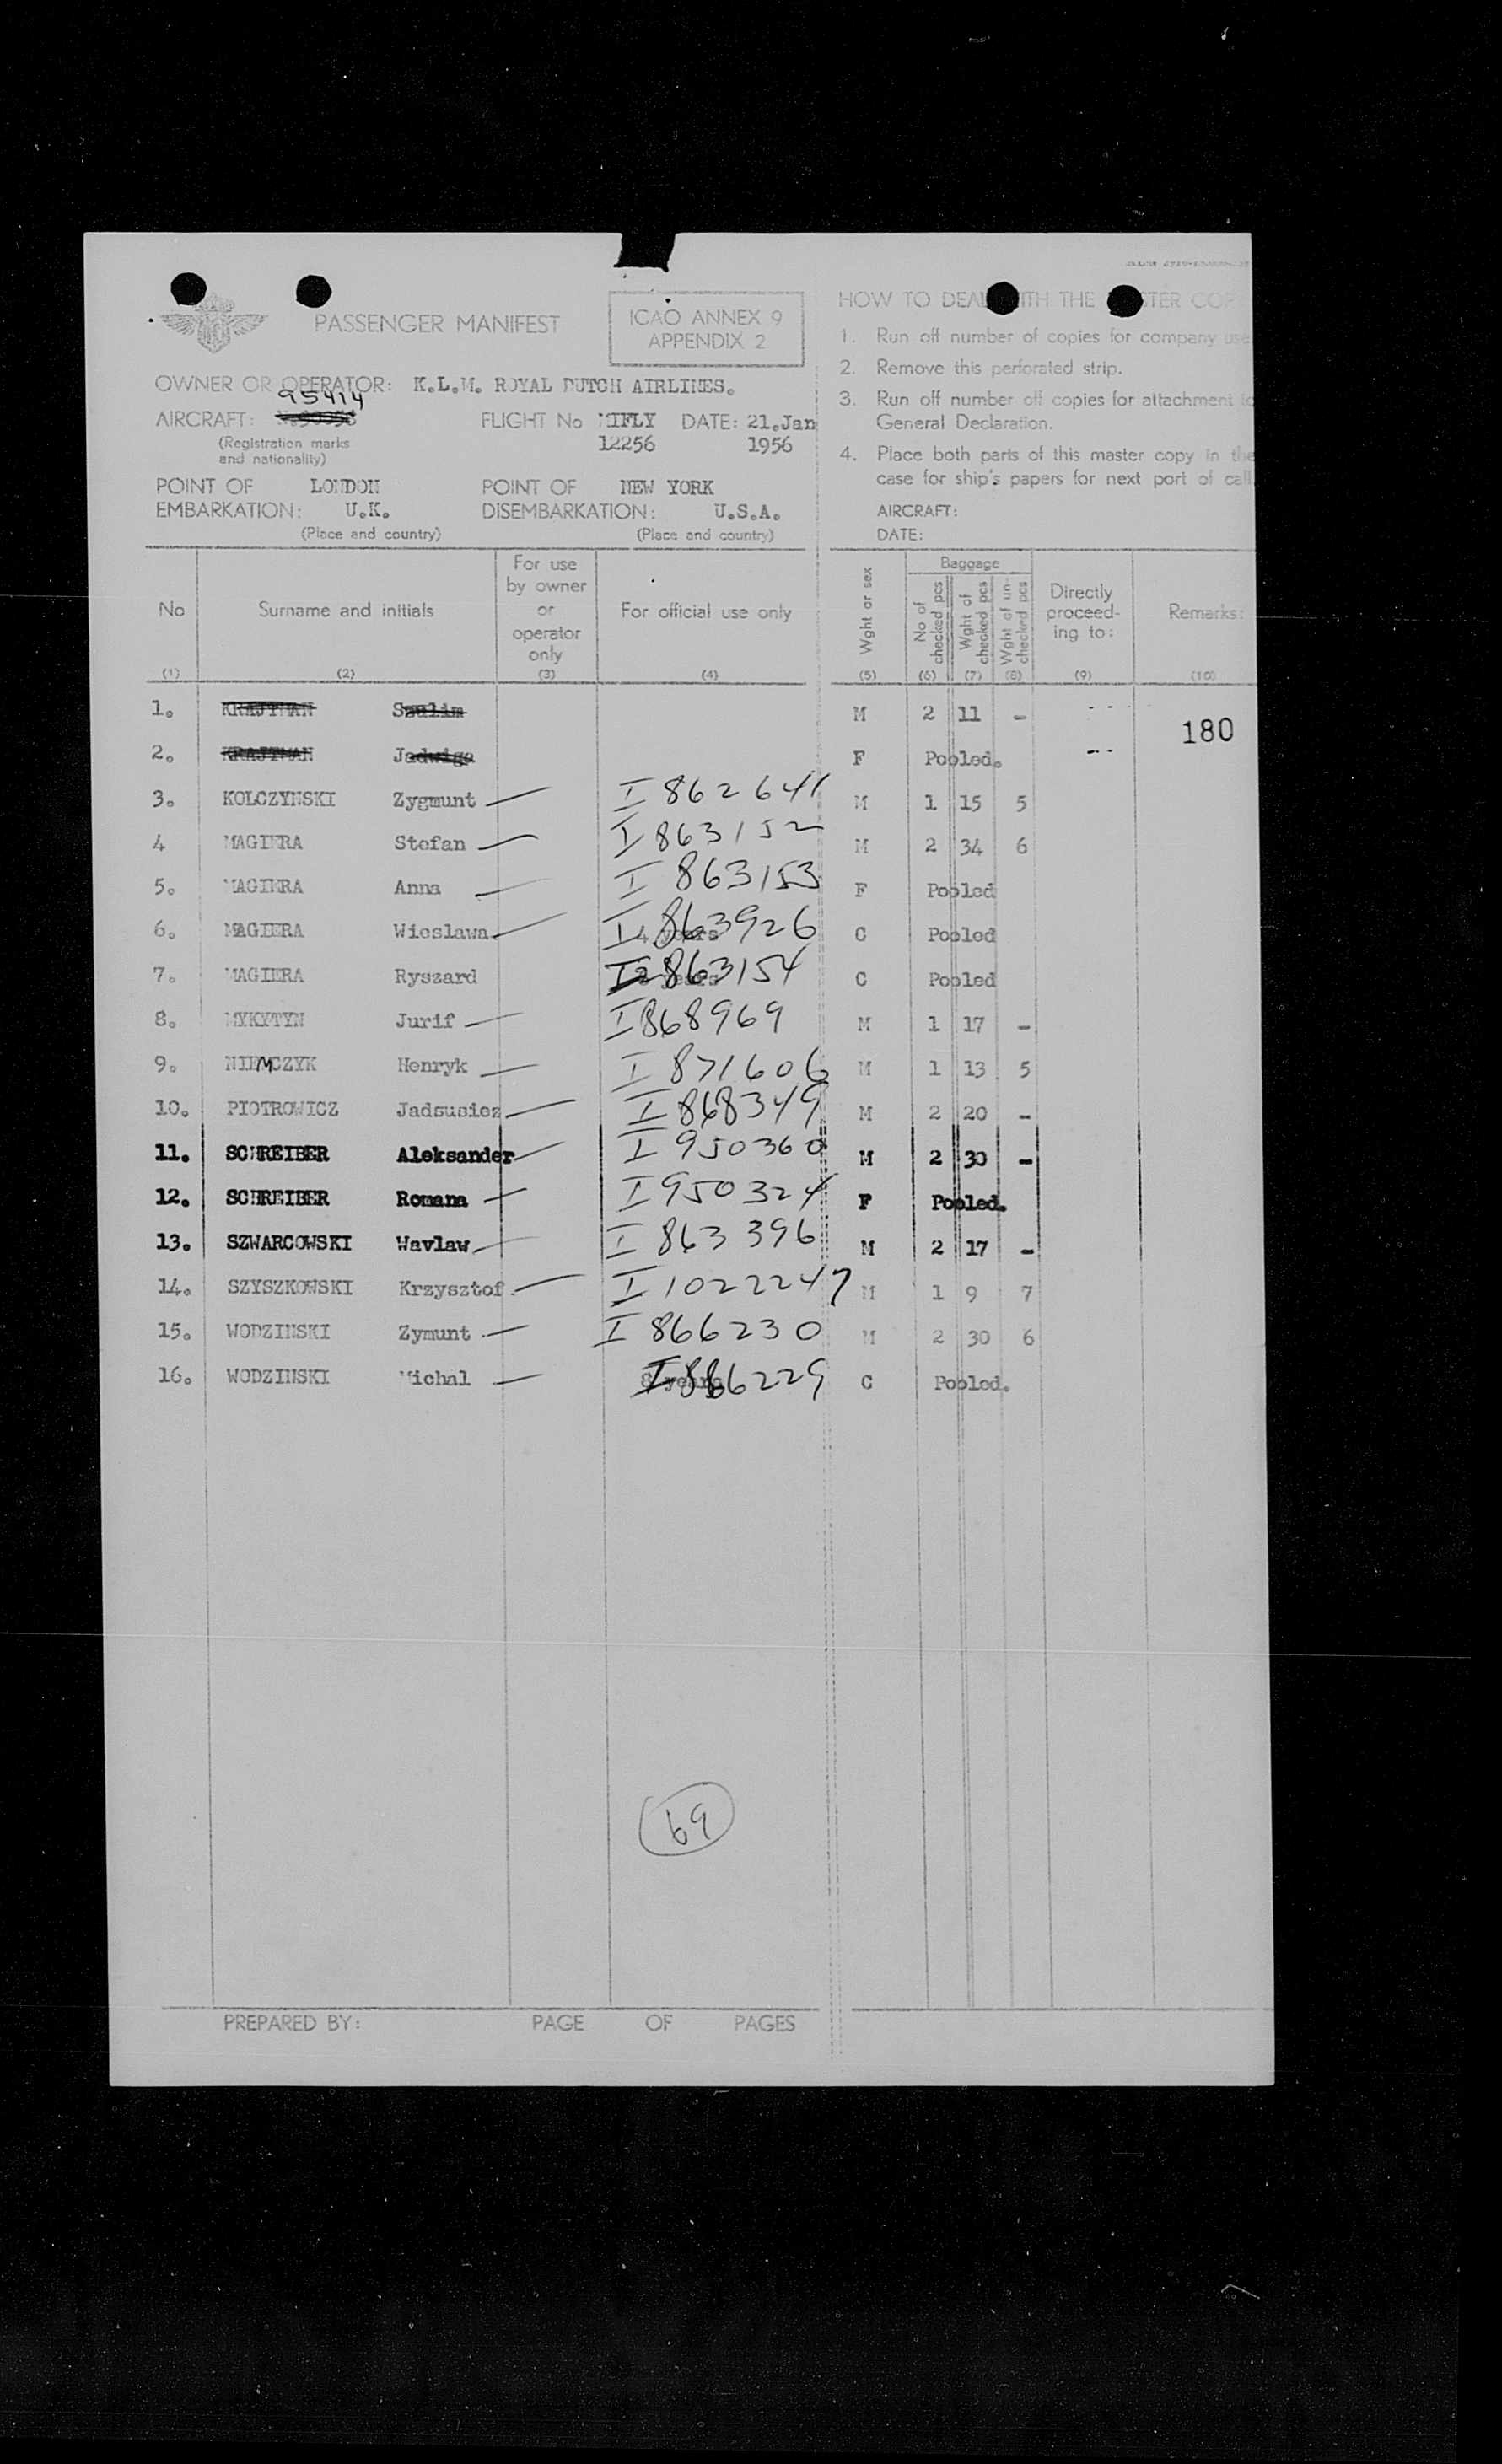 PASSENGER MANIFEST
ICAO ANNEX 9
APPENDIX 2
OWNER OR OPERATOR: K.L.M. ROYAL DUTCH AIRLINES.
95414
AIRCRAFT: FLIGHT No MIFLY DATE: 21.Jan
(Registration marks 12256 1956
and nationality)
POINT OF LONDON POINT OF NEW YORK
EMBARKATION: U.K. DISEMBARKATION: U.S.A.
(Place and country) (Place and country)
HOW TO DEAL WITH THE MASTER COP
1. Run off number of copies for company use
2. Remove this perforated strip.
3. Run off number off copies for attachment to
General Declaration.
4. Place both parts of this master copy in the
case for ship's papers for next port of call
AIRCRAFT:
DATE:
No Surname and initials For use by owner or operator only For official use only Wght or sex Baggage No of checked pcs Wght of checked pcs Wght of un-checked pcs Directly proceed-ing to: Remarks:
(1) (2) (3) (4) (5) (6) (7) (8) (9) (10)
1. KRAJTMAN Szulim M 2 11 - - - -
180
2. KRAJTMAN Jadwiga F Pooled. - - -
3. KOLCZYNSKI Zygmunt — I 862641 M 1 15 5
4 MAGIERA Stefan — I 863152 M 2 34 6
5. MAGIERA Anna — I 863153 F Pooled
6. MAGIERA Wieslawa — 4 years I 863926 C Pooled
7. MAGIERA Ryszard 2 years I 863154 C Pooled
8. MYKYTYN Jurif — I 868969 M 1 17 -
9. NIEMCZYK Henryk — I 871606 M 1 13 5
10. PIOTROWICZ Jadsusiez — I 868349 M 2 20 -
11. SCHREIBER Aleksander — I 950360 M 2 30 -
12. SCHREIBER Romana — I 950324 F Pooled.
13. SZWARCOWSKI Wavlaw — I 863396 M 2 17 -
14. SZYSZKOWSKI Krzysztof — I 1022247 M 1 9 7
15. WODZINSKI Zymunt — I 866230 M 2 30 6
16. WODZINSKI Michal — 8 years I 866229 C Pooled.
69
PREPARED BY: PAGE OF PAGES